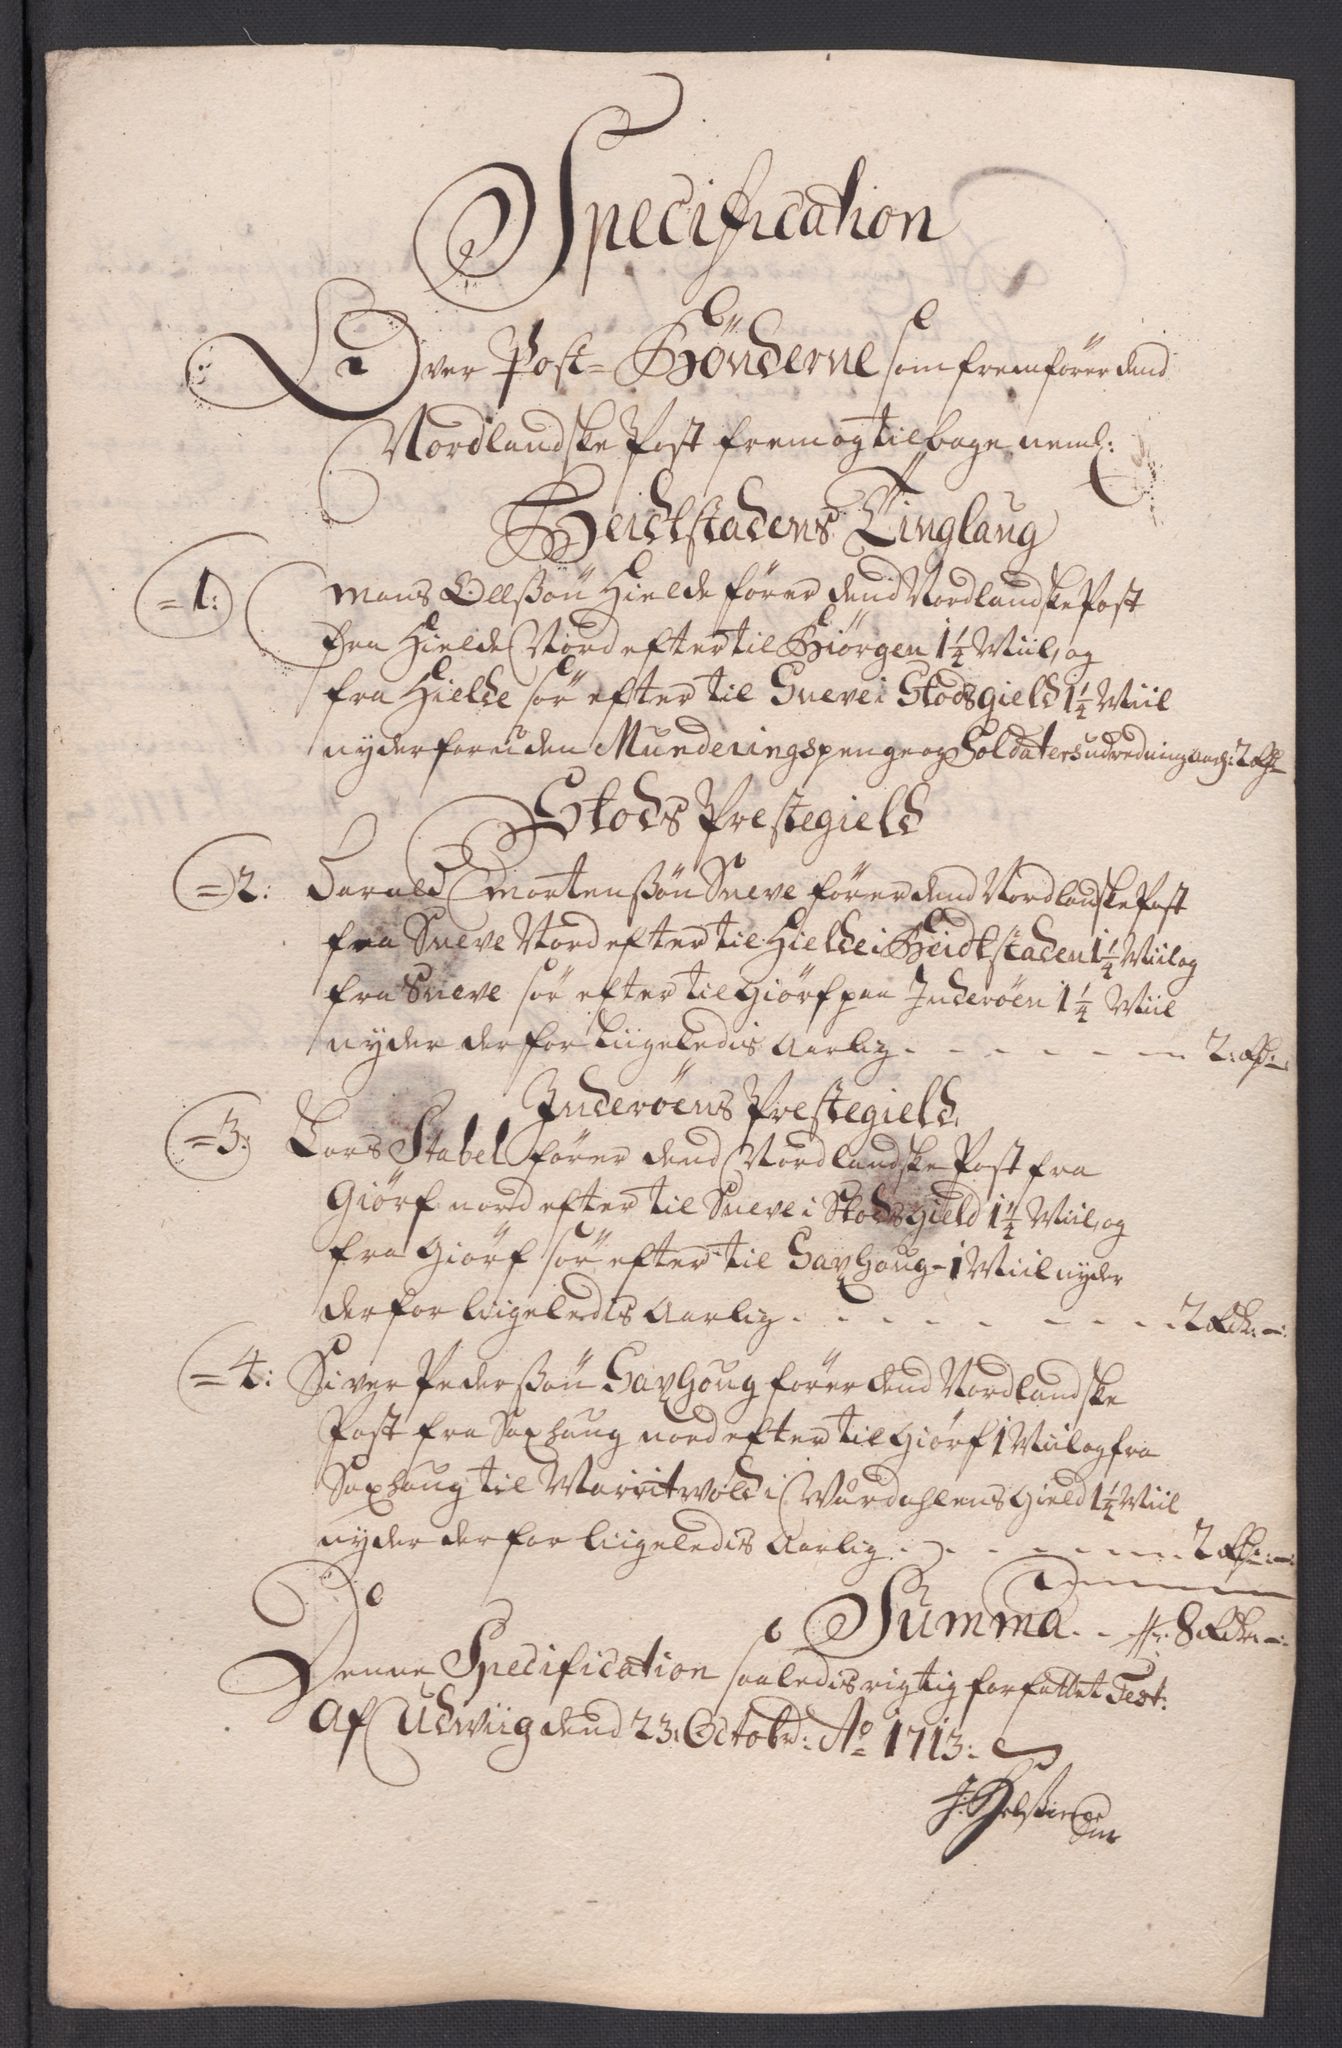 Specification
Over Post-Bönderne som fremfören dend
Nordlandske Post frem og tilbage neml:
Beidtstadens Tinglaug
=1: Mons Ollßøn Hielde förer dend Nordlandske Post
fra Hielde Nord efter til Biörgen 1¼ Miil, og
fra Hielde sör efter til Sneve i Stods gield 1¼ Miil
nyder foruden Munderings penge og Soldaters udredning aarl: 2 Rdr
Stods Prestegield
=2: Harald Mortenßön Sneve förer dend Nordlandske Post
fra Sneve Nord efter til Hielde i Beidtstaden 1¼ Miil og
fra Sneve sör efter til Giörf paa Inderöen 1¼ Miil
nyder derfor liigeledis Aarlig . - - - - - 2: Rdr:-
Inderöens Prestegield.
=3: Lars Stabel förer dend Nordlandske Post fra
Giörf nord efter til Sneve i Stods gield 1¼ Miil, og
fra Giörf sör efter til Saxhoug - 1 Miil nyder
derfor liigeledis Aarlig . - - - - - 2 Rdr:-:
=4: Siver Pederßön Saxhoug förer dend Nordlandske
Post fra Saxhaug nord efter til Giörf 1 Miil og fra
Saxhaug til Marritvold i Wurdahlens Gield 1¼ Miil
nyder derfor liigeledis Aarlig . - - - - - 2 Rdr:-:
Summa . - 8 Rdr:-:
Denne Specification saaledis rigtig forfattet Test:
Af Udwiig dend 23: Octobr: Ao 1713: